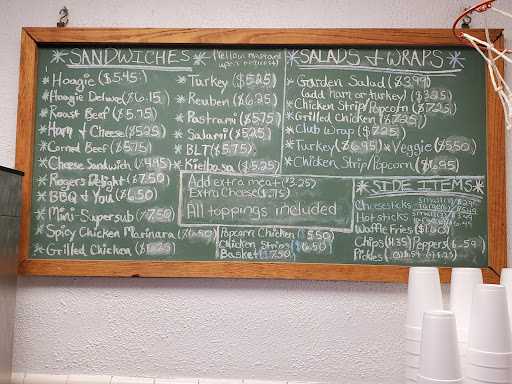 *SANDWICHES*
(Yellow Mustard
upon request)
*Hoagie ($5.45)
*Hoagie Deluxe ($6.15
*Roast Beef ($5.75)
*Ham & Cheese ($5.25)
*Corned Beef ($5.75)
*Cheese Sandwich ($4.95)
*Rogers Delight ($7.50)
*BBQ & You ($6.50)
*Mini-Supersub ($7.50)
*Spicy Chicken Marinara ($6.50)
*Grilled Chicken
*Turkey ($5.25)
*Reuben ($6.25)
*Pastrami ($5.75)
*Salami ($5.25)
*BLT ($5.75)
*Kielbasa ($5.25)
Add extra meat ($3.25)
Extra Cheese ($.75)
All toppings included
Popcorn Chicken ($5.50)
Chicken Strips ($6.50)
Basket ($7.50)
*SALADS & WRAPS*
*Garden Salad ($3.99)
(add ham or turkey)
*Chicken Strip/Popcorn ($7.25)
*Grilled Chicken ($7.25)
*Club Wrap ($7.25)
*Turkey ($6.95) *Veggie ($5.50)
*Chicken Strip/Popcorn ($6.95)
*SIDE ITEMS*
Cheesesticks
Hot sticks
Waffle Fries ($1.60)
Chips Peppers
Pickles